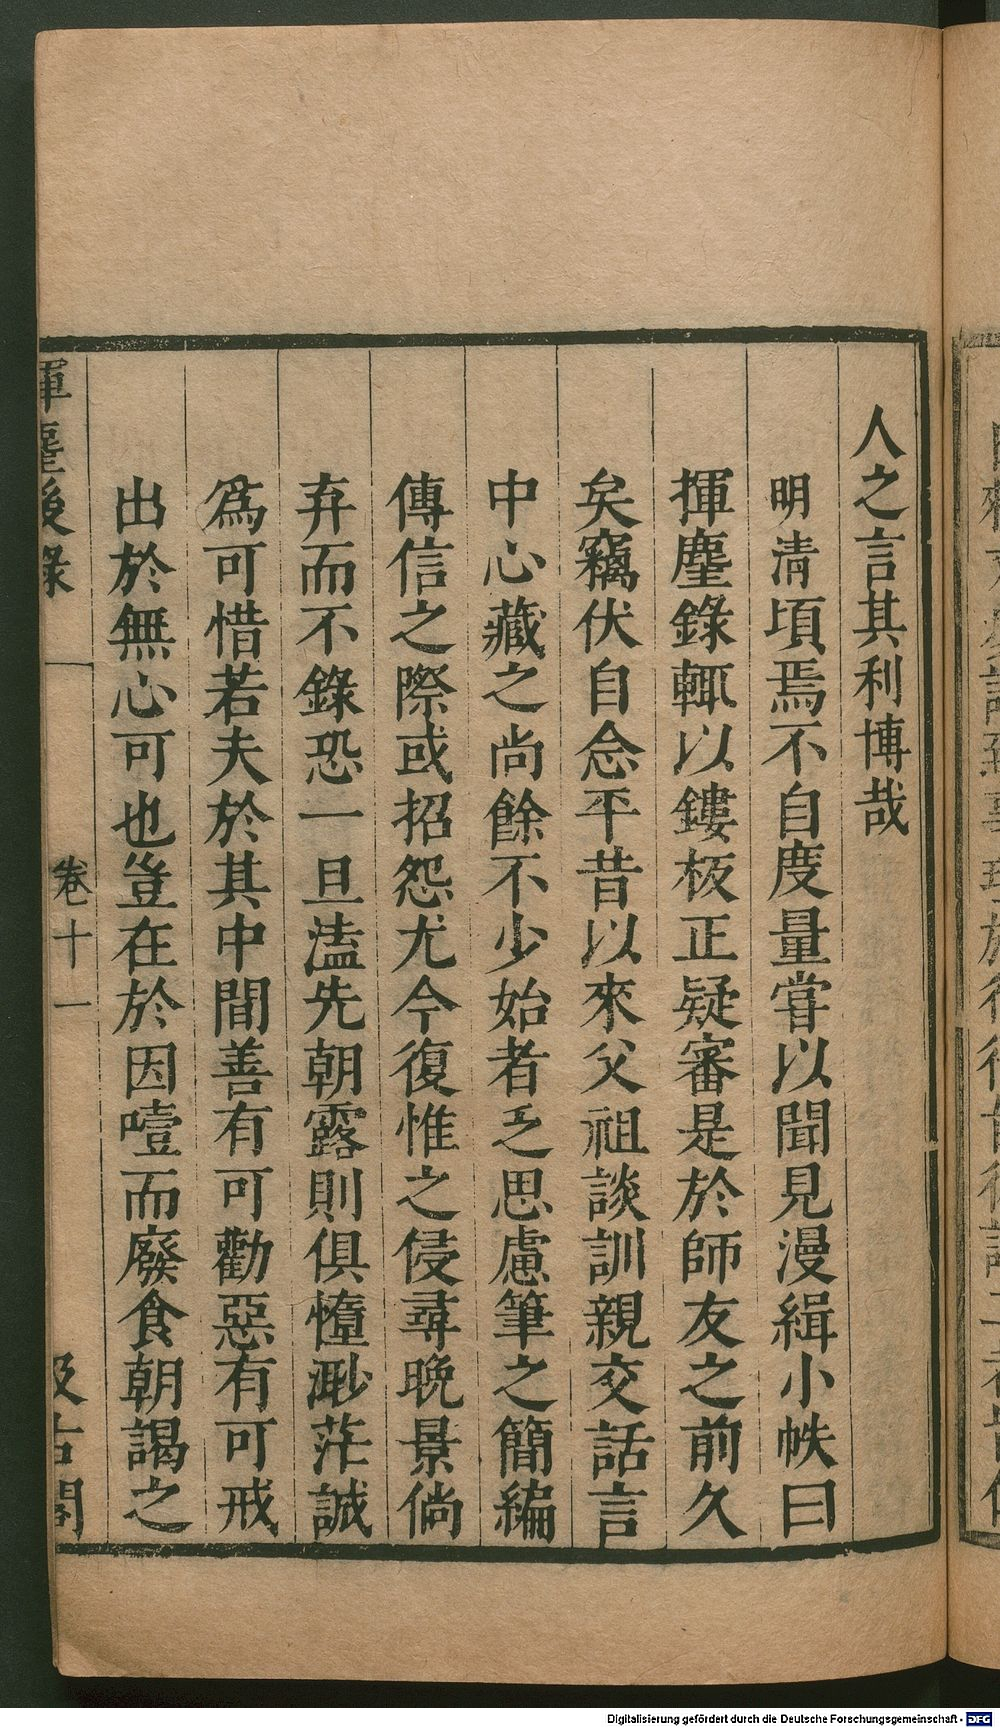 人之言其利博哉
明清頃焉不自度量嘗以聞見漫緝小帙曰
揮麈錄輒以鏤板正疑審是於師友之前久
矣竊伏自念平昔以來父祖談訓親交話言
中心藏之尚餘不少始者乏思慮筆之簡編
傳信之際或招怨尤今復惟之侵尋晚景倘
弃而不錄恐一旦溘先朝露則俱墮渺茫誠
爲可惜若夫於其中間善有可勸惡有可戒
出於無心可也豈在於因噎而廢食朝謁之
揮麈後錄
卷十一
汲古閣
Digitalisierung gefördert durch die Deutsche Forschungsgemeinschaft - DFG